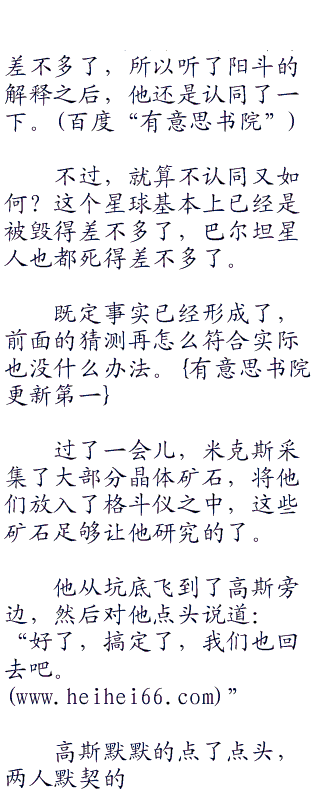 差不多了，所以听了阳斗的
解释之后，他还是认同了一
下。(百度“有意思书院”)
不过，就算不认同又如
何？这个星球基本上已经是
被毁得差不多了，巴尔坦星
人也都死得差不多了。
既定事实已经形成了，
前面的猜测再怎么符合实际
也没什么办法。{有意思书院
更新第一}
过了一会儿，米克斯采
集了大部分晶体矿石，将他
们放入了格斗仪之中，这些
矿石足够让他研究的了。
他从坑底飞到了高斯旁
边，然后对他点头说道：
“好了，搞定了，我们也回
去吧。
(www.heihei66.com)”
高斯默默的点了点头，
两人默契的